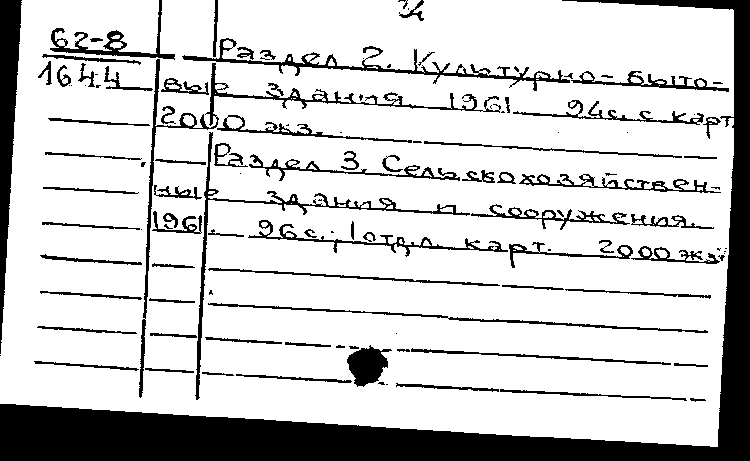 62-8
1644
Раздел 2. Культурно-быто-
вые здания. 1961. 94с. с карт.
2000 экз.
Раздел 3. Сельскохозяйствен-
ные здания и сооружения.
1961. 96с.; 1 отд.л. карт. 2000 экз.